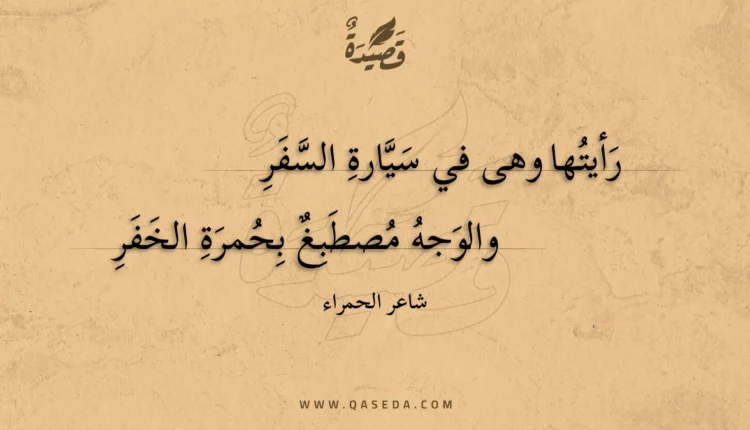 قَصِيدَةٌ
رَأيتُها وهى في سَيَّارةِ السَّفَرِ
والوَجهُ مُصطَبِغٌ بِحُمرَةِ الخَفَرِ
شاعر الحمراء
WWW.QASEDA.COM